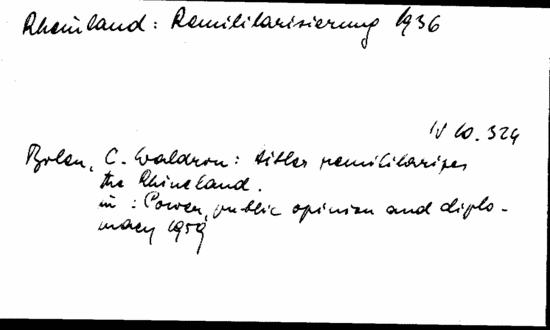 Rheinland: Remilitarisierung 1936
IV 60.324
Bolen, C. Waldron: Hitler remilitarizes
the Rhineland.
in: Power, public opinion and diplo-
macy 1959